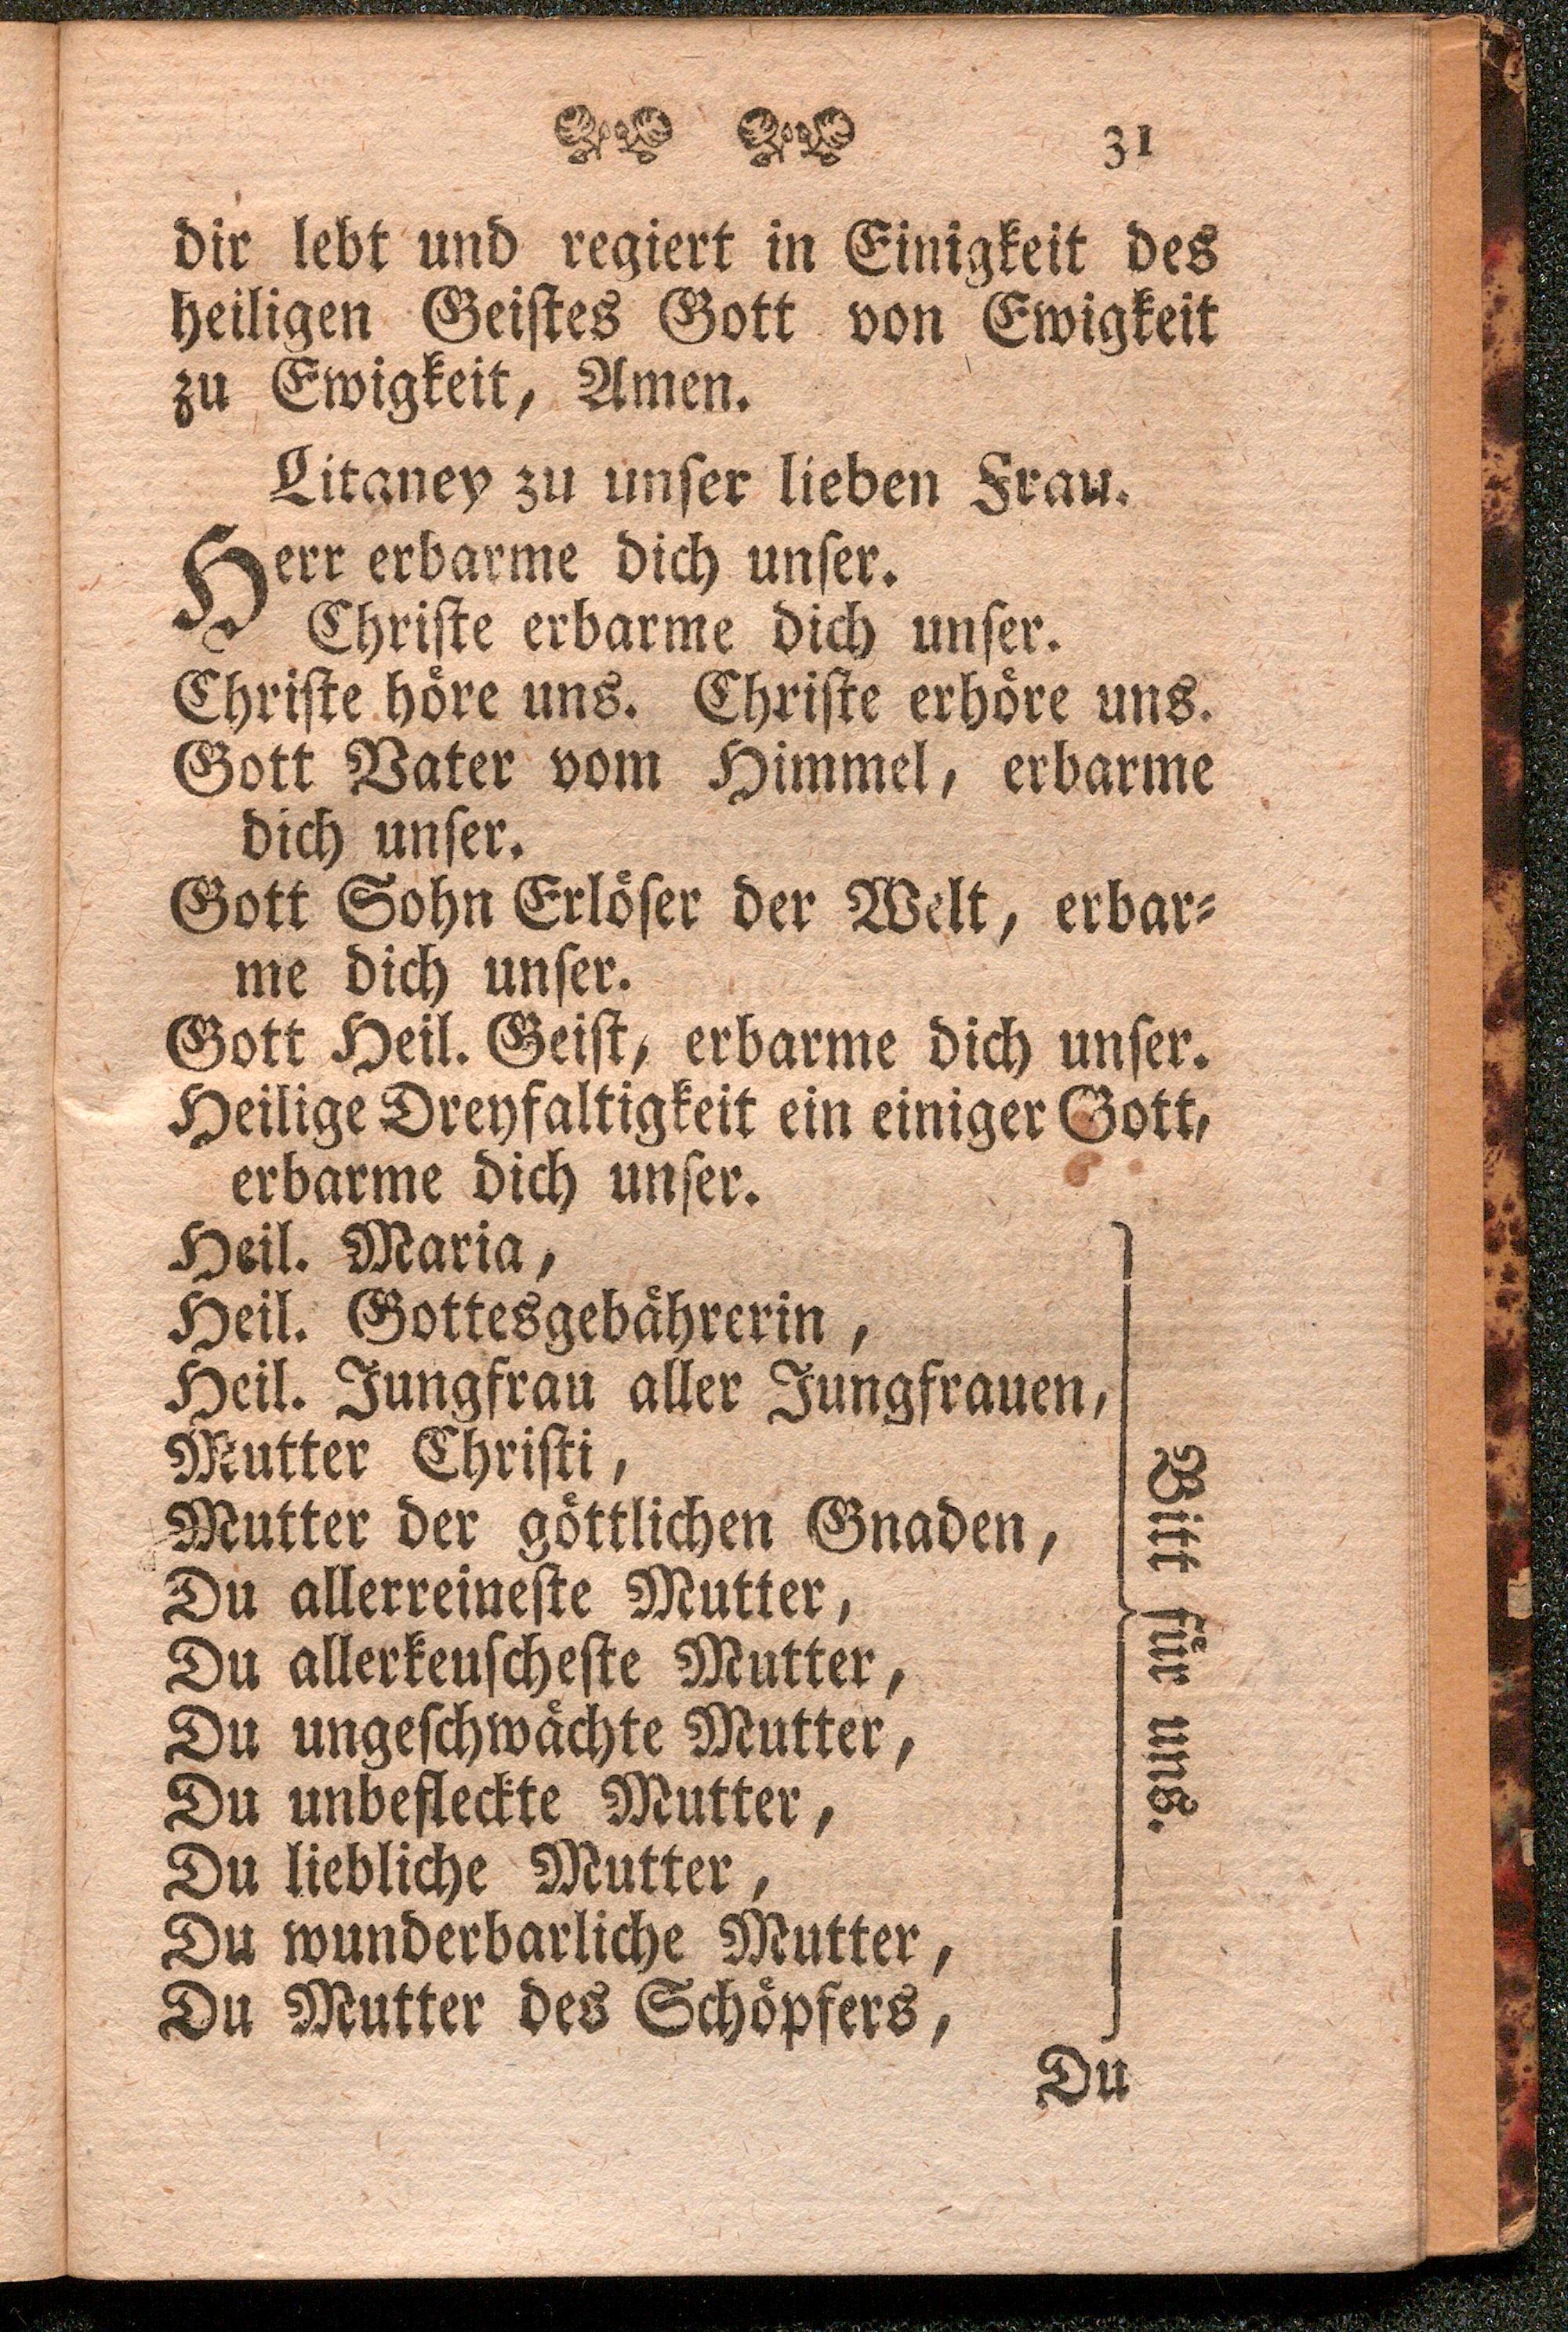 31
dir lebt und regiert in Einigkeit des
heiligen Geiſtes Gott von Ewigkeit
zu Ewigkeit, Amen.
Litaney zu unſer lieben Frau.
Herr erbarme dich unſer.
Chriſte erbarme dich unſer.
Chriſte höre uns. Chriſte erhöre uns.
Gott Vater vom Himmel, erbarme
dich unſer.
Gott Sohn Erlöſer der Welt, erbar⸗
me dich unſer.
Gott Heil. Geiſt, erbarme dich unſer.
Heilige Dreyfaltigkeit ein einiger Gott,
erbarme dich unſer.
Heil. Maria,
Heil. Gottesgebährerin,
Heil. Jungfrau aller Jungfrauen,
Mutter Chriſti,
Mutter der göttlichen Gnaden,
Du allerreineſte Mutter,
Du allerkeuſcheſte Mutter,
Du ungeſchwächte Mutter,
Du unbefleckte Mutter,
Du liebliche Mutter,
Du wunderbarliche Mutter,
Du Mutter des Schöpfers,
Bitt für uns.
Du